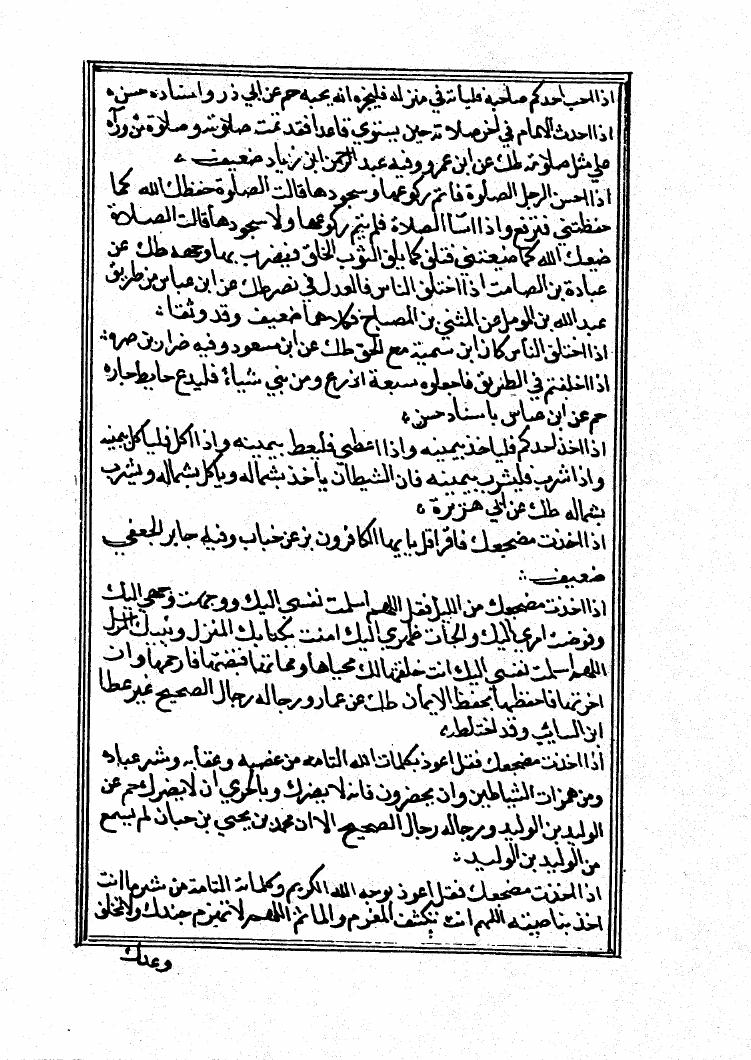 اذا احب احدكم صاحبه فلياته في منزله فليخبره انه يحبه حم عن ابي ذر واسناده حسن ه
اذا احدث الامام في اخر صلاته حين يستوي قاعدا فقد تمت صلاته وصلاة من وراه
علي مثل صلاته طك عن ابن عمرو وفيه عبد الرحمن ابن زياد ضعيف ه
اذا احسن الرجل الصلوة فاتم ركوعها وسجودها قالت الصلوة حفظك الله كما
حفظتني فترفع واذا اسآ الصلاة فلم يتم ركوعها ولا سجودها قالت الصلاة
ضيعك الله كما ضيعتني فتلف كما يلف الثوب الخلق فيضرب بها وجهه طك عن
عبادة بن الصامت اذا اختلف الناس فالعدل في مضر طك عن ابن عباس من طريق
عبد الله بن المومل عن المثني بن الصباح فكلاهما ضعيف وقد وثقا ؞
اذا اختلف الناس كان ابن سمية مع الحق طك عن ابن مسعود وفيه ضرار بن صرد ؞
اذا اختلفتم في الطريق فاجعلوه سبعة اذرع ومن بني شياء فليدع حايط جاره
حم عن ابن عباس باسناد حسن ه
اذا اخذ احدكم فلياخذ بيمينه واذا اعطي فليعط بيمينه واذا اكل فلياكل بيمينه
واذا شرب فليشرب بيمينه فان الشيطان ياخذ بشماله وياكل بشماله ويشرب
بشماله طك عن ابي هريرة ه
اذا اخذت مضجعك فاقرا قل يا يها الكافرون بز عن خباب وفيه جابر الجعفي
ضعيف ؞
اذا اخذت مضجعك من الليل فقل اللهم اسلمت نفسي اليك ووجهت وجهي اليك
وفوضت امري اليك والجات ظهري اليك امنت بكتابك المنزل ونبيك المرسل
اللهم اسلمت نفسي اليك انت خلقتها لك محياها ومماتها ان قبضتها فارحمها وان
اخرتها فاحفظها بحفظ الايمان طك عن عمار ورجاله رجال الصحيح غير عطا
ابن السايب وقد اختلط ه
اذا اخذت مضجعك فقل اعوذ بكلمات الله التامه من غضبه وعقابه وشر عباده
ومن همزات الشياطين وان يحضرون فانه لا يضرك وبالحري ان لا يضرك حم عن
الوليد بن الوليد ورجاله رجال الصحيح الا ان محمد بن يحيي بن حبان لم يسمع
من الوليد بن الوليد ؞
اذا اخذت مضجعك فقل اعوذ بوجه الله الكريم وكلماته التامة من شر ما انت
اخذ بناصيته اللهم انت تكشف المغرم والماثم اللهم لا يهزم جندك ولا يخلف
وعدك